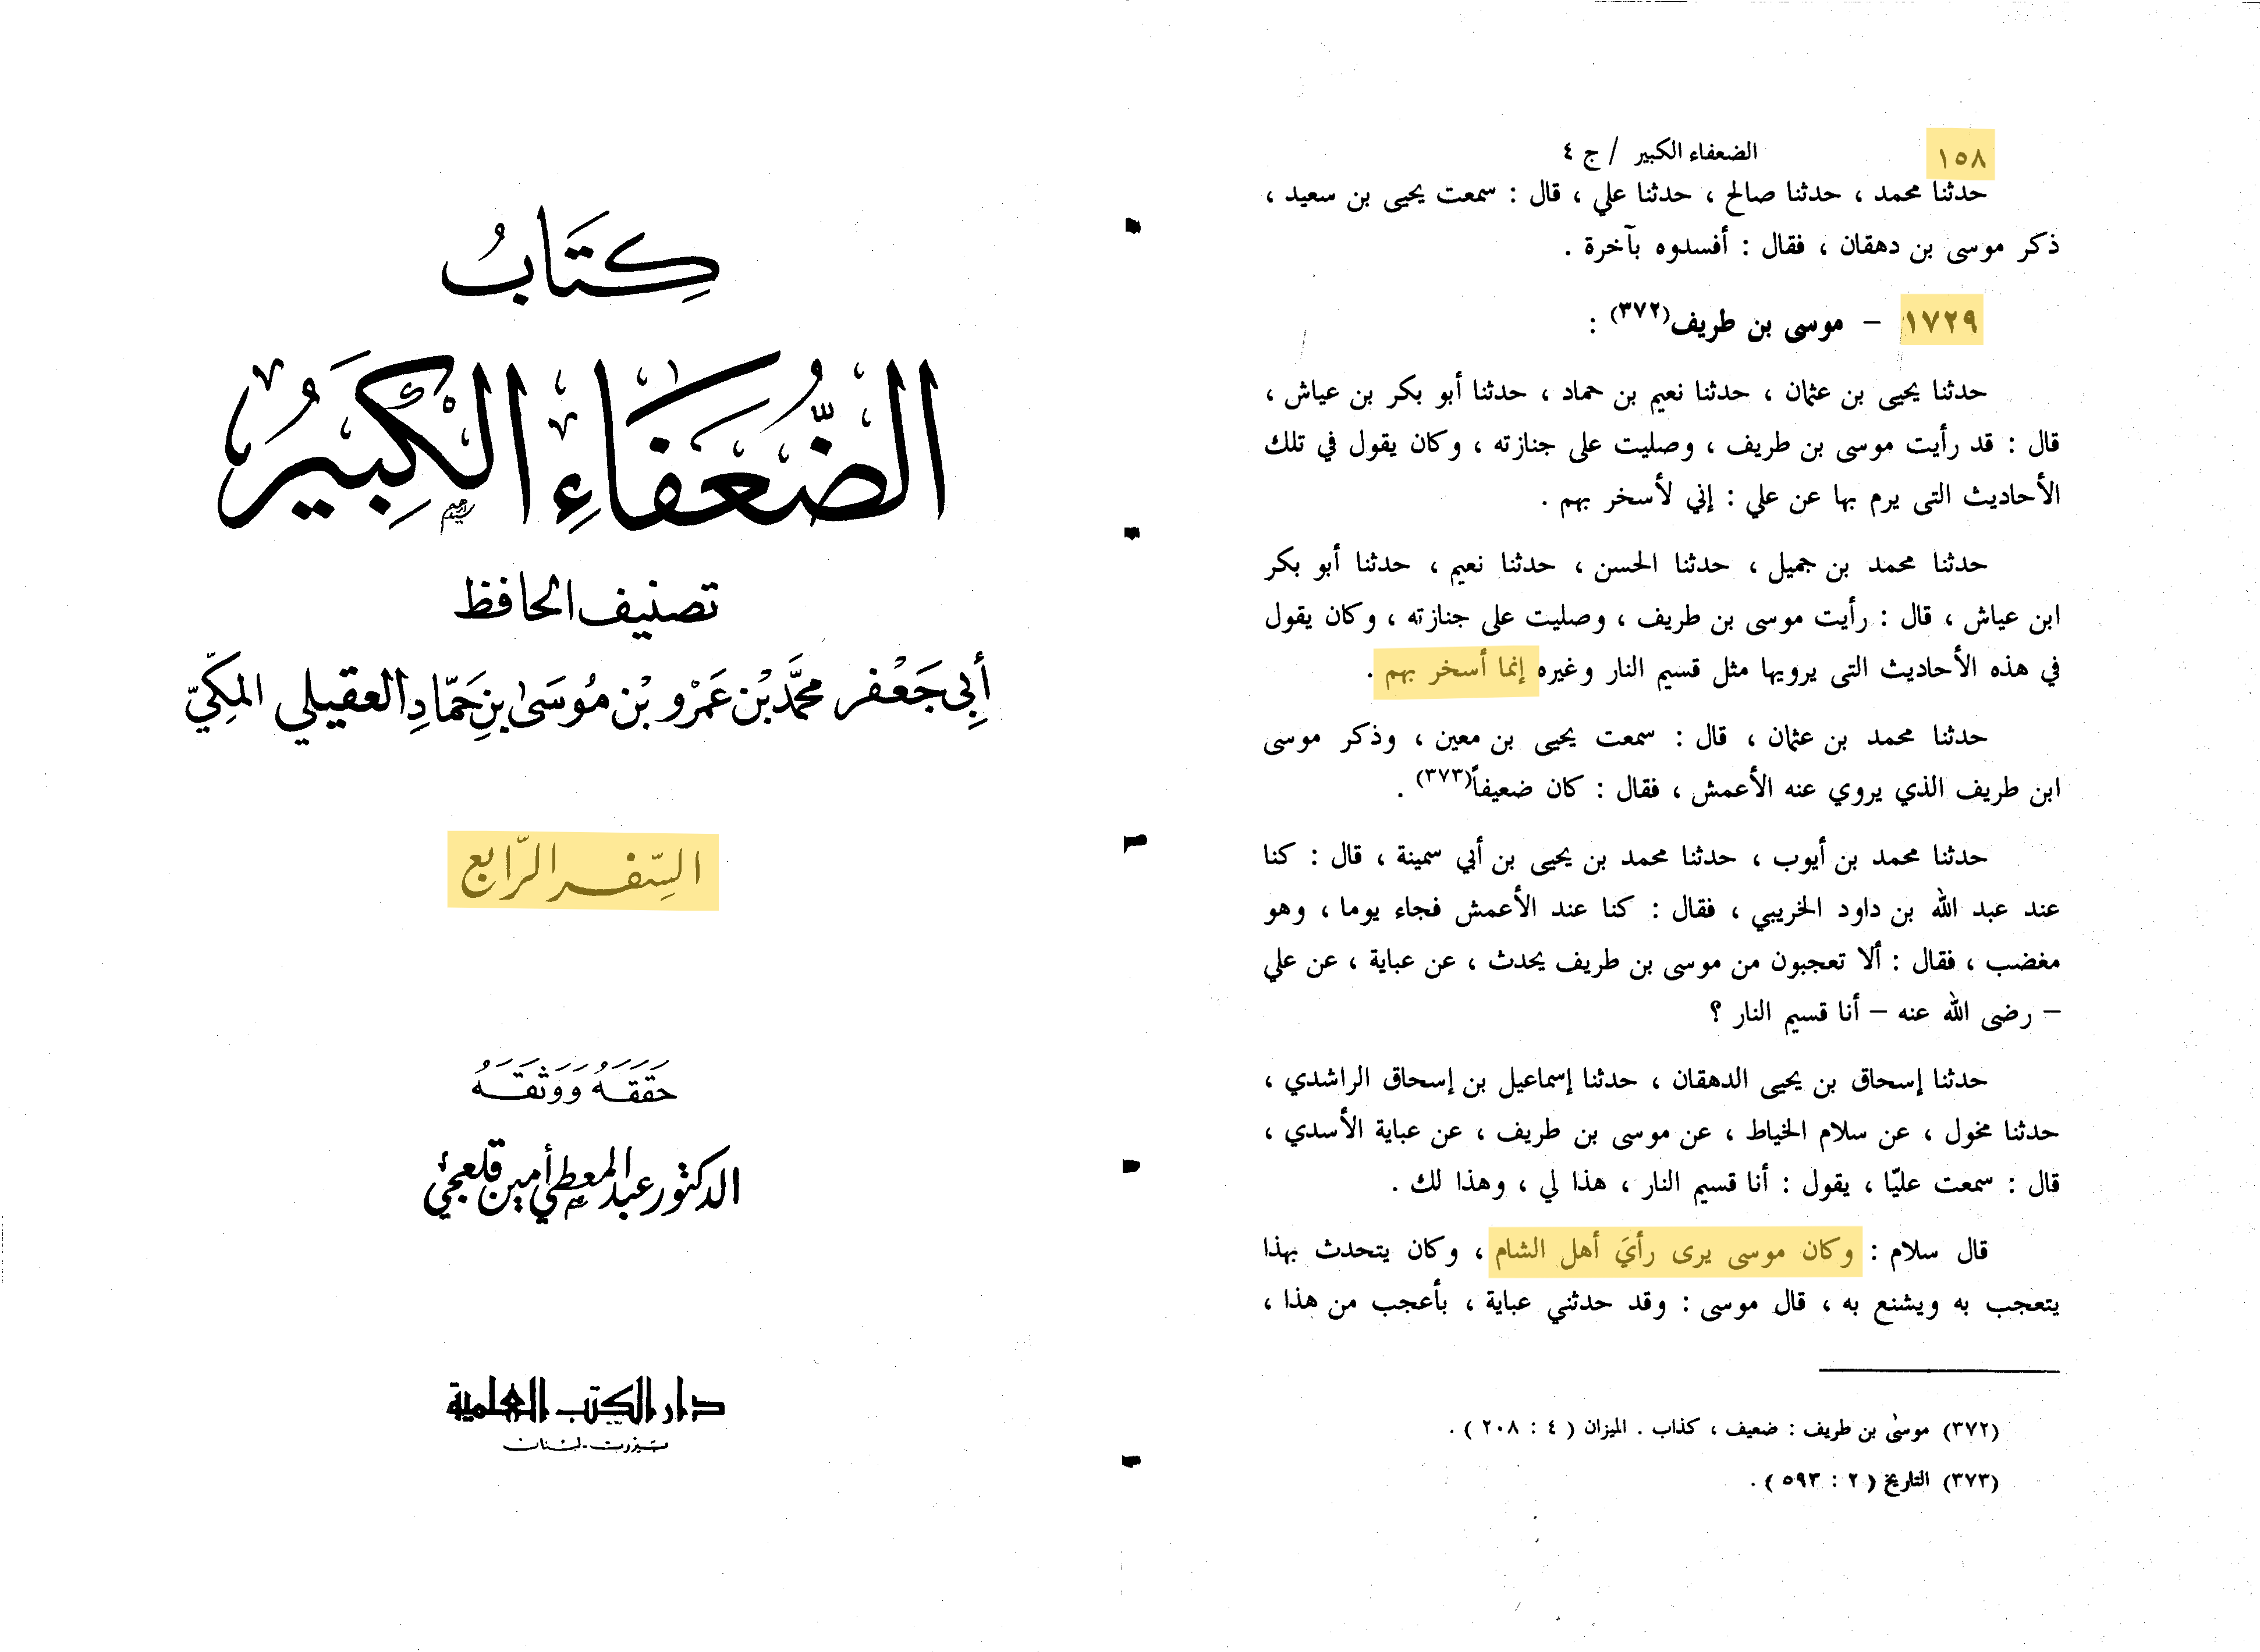 كِتَابُ
الضُّعَفَاءِ الكَبِيرُ
تصنيف الحافظ
أَبِي جَعْفر محمَّد بْن عَمْرو بْن مُوسَىٰ بنِ حَمّادِ العقيلي المكِيّ
السِّفر الرَّابع
حَقَّقَهُ وَوَثَّقَهُ
الدكتور عبد المعطي أمين قلعجي
دار الكتب العلمية
بيروت - لبنان
١٥٨ الضعفاء الكبير / ج ٤
حدثنا محمد ، حدثنا صالح ، حدثنا علي ، قال : سمعت يحيى بن سعيد ،
ذكر موسى بن دهقان ، فقال : أفسدوه بآخرة .
١٧٢٩ – موسى بن طريف(٣٧٢) :
حدثنا يحيى بن عثمان ، حدثنا نعيم بن حماد ، حدثنا أبو بكر بن عياش ،
قال : قد رأيت موسى بن طريف ، وصليت على جنازته ، وكان يقول في تلك
الأحاديث التى يرم بها عن علي : إني لأسخر بهم .
حدثنا محمد بن جميل ، حدثنا الحسن ، حدثنا نعيم ، حدثنا أبو بكر
ابن عياش ، قال : رأيت موسى بن طريف ، وصليت على جنازته ، وكان يقول
في هذه الأحاديث التى يرويها مثل قسيم النار وغيره إنما أسخر بهم .
حدثنا محمد بن عثمان ، قال : سمعت يحيى بن معين ، وذكر موسى
ابن طريف الذي يروي عنه الأعمش ، فقال : كان ضعيفاً(٣٧٣) .
حدثنا محمد بن أيوب ، حدثنا محمد بن يحيى بن أبي سمينة ، قال : كنا
عند عبد الله بن داود الخريبي ، فقال : كنا عند الأعمش فجاء يوما ، وهو
مغضب ، فقال : ألا تعجبون من موسى بن طريف يحدث ، عن عباية ، عن علي
– رضى الله عنه – أنا قسيم النار ؟
حدثنا إسحاق بن يحيى الدهقان ، حدثنا إسماعيل بن إسحاق الراشدي ،
حدثنا مخول ، عن سلام الخياط ، عن موسى بن طريف ، عن عباية الأسدي ،
قال : سمعت عليّا ، يقول : أنا قسيم النار ، هذا لي ، وهذا لك .
قال سلام : وكان موسى يرى رأيَ أهل الشام ، وكان يتحدث بهذا
يتعجب به ويشنع به ، قال موسى : وقد حدثني عباية ، بأعجب من هذا ،
(٣٧٢) موسىٰ بن طريف : ضعيف ، كذاب . الميزان ( ٤ : ٢٠٨ ) .
(٣٧٣) التاريخ ( ٢ : ٥٩٣ ) .